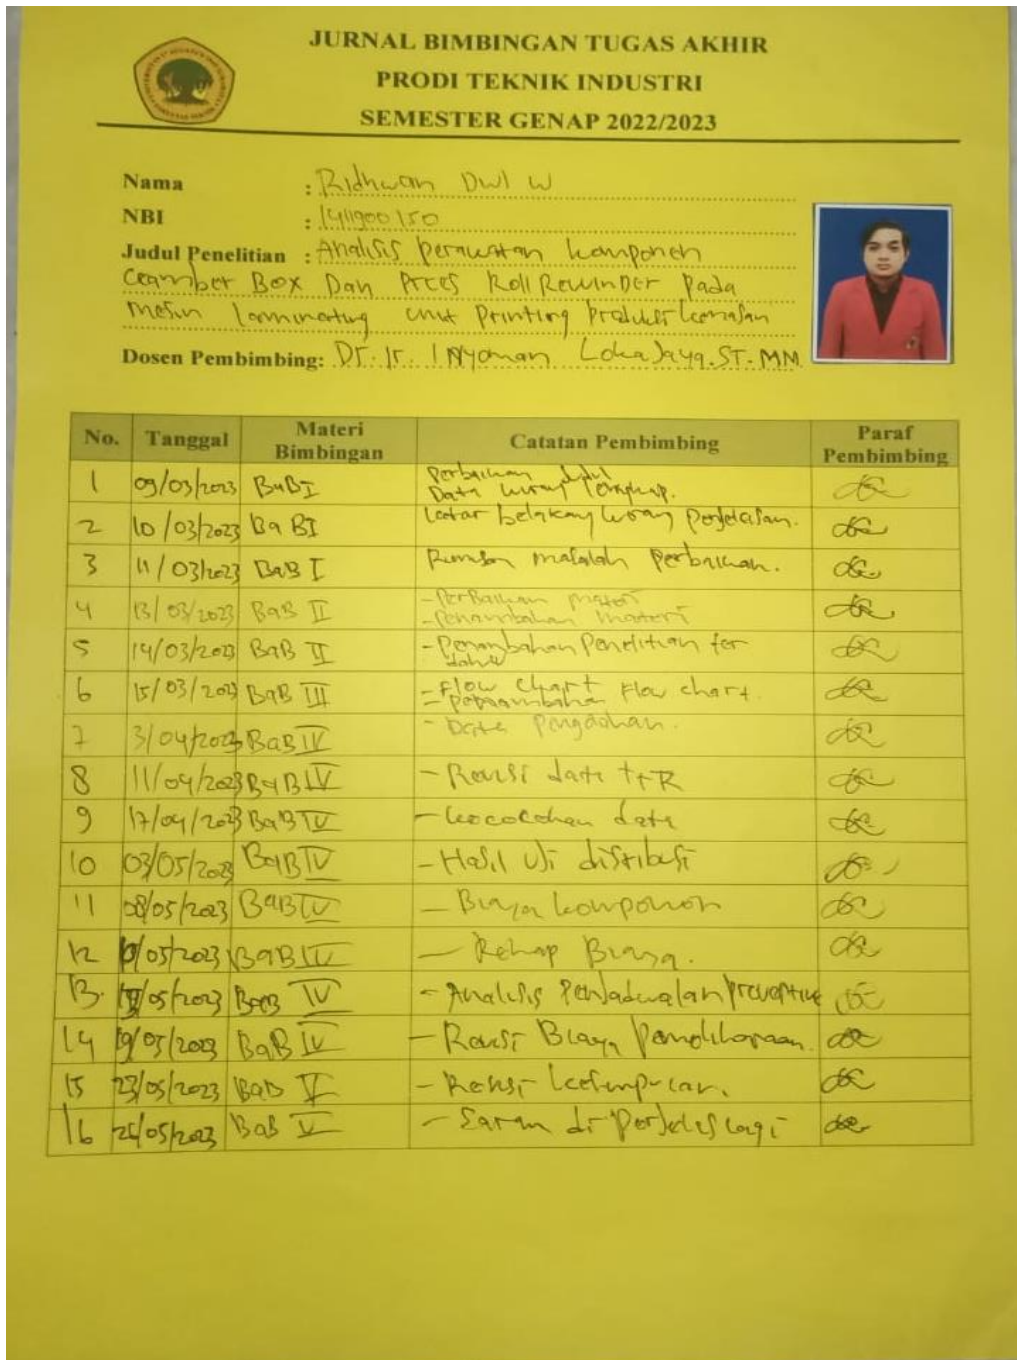 JURNAL BIMBINGAN TUGAS AKHIR
PRODI TEKNIK INDUSTRI
SEMESTER GENAP 2022/2023
Nama : Ridhwan Dwi W
NBI : 1411900150
Judul Penelitian : Analisis Perawatan Komponen
Ceamber Box Dan Prces Roll Rewinder Pada
Mesin Laminating Unit Printing Produksi Kemasan
Dosen Pembimbing: Dr. Ir. I Nyoman Lokajaya. ST. MM
No. Tanggal Materi Bimbingan Catatan Pembimbing Paraf Pembimbing
1 09/03/2023 BaB I Perbaikan Judul
Data kurang lengkap.
2 10/03/2023 BaB I Latar belakang kurang Penjelasan.
3 11/03/2023 BaB I Rumusan masalah Perbaikan.
4 13/03/2023 BaB II - Perbaikan Materi
- Penambahan Materi
5 14/03/2023 BaB II - Penambahan Penelitian ter
dahulu
6 15/03/2023 BaB III - Flow chart Flow chart.
- Penambahan
7 3/04/2023 BaB IV - Data
8 11/04/2023 BaB IV - Revisi data TTR
9 17/04/2023 BaB IV - kecocokan data
10 03/05/2023 BaB IV - Hasil Uji distribusi
11 08/05/2023 BaB IV - Biaya komponen
12 /05/2023 BaB IV - Rekap Biaya.
13. /05/2023 BaB IV - Analisis Penjadwalan Preventive
14 19/05/2023 BaB IV - Revisi Biaya Pemeliharaan.
15 23/05/2023 BaB V - Revisi kesimpulan.
16 26/05/2023 BaB V - Saran di Perjelas lagi